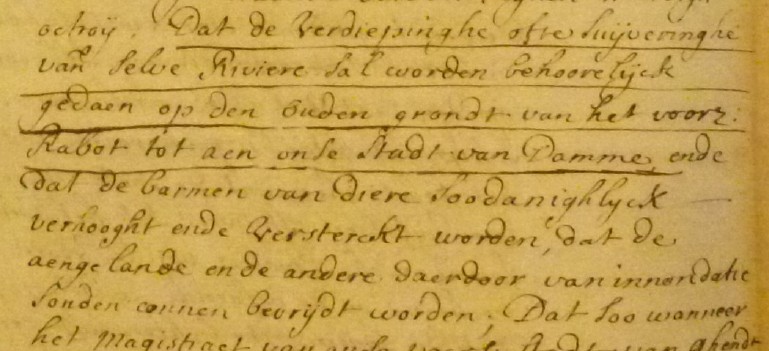 octroij. Dat de Verdiepinghe ofte suijveringhe
van selve Riviere sal worden behoorelijck
gedaen op den ouden grondt van het voorz:
Rabot tot aen onse Stadt van Damme, ende
dat de barmen van diere soodanighlyck
verhooght ende Versterckt worden, dat de
aengelande ende andere daerdoor van innondatie
souden connen bevrijdt worden; Dat soo wanneer
het Magistraet van onse Stadt van Ghendt